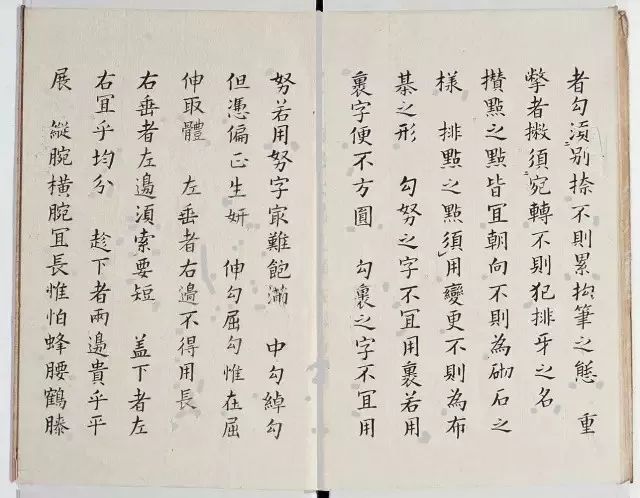 者勾湏別捺不則累拘筆之態　重
撆者撇須宛轉不則犯排牙之名
攢㸃之㸃皆冝朝向不則為砌石之
樣　排㸃之㸃須用變更不則為布
棊之形　勾努之字不冝用裹若用
裹字便不方圓　勾裹之字不冝用
努若用努字㝡難飽滿　中勾綽勾
但憑偏正生妍　伸勾屈勾惟在屈
伸取體　左垂者右邊不得用長
右垂者左邊湏索要短　盖下者左
右冝乎均分　趁下者兩邊貴乎平
展　縱腕橫腕冝長惟怕蜂腰鶴膝